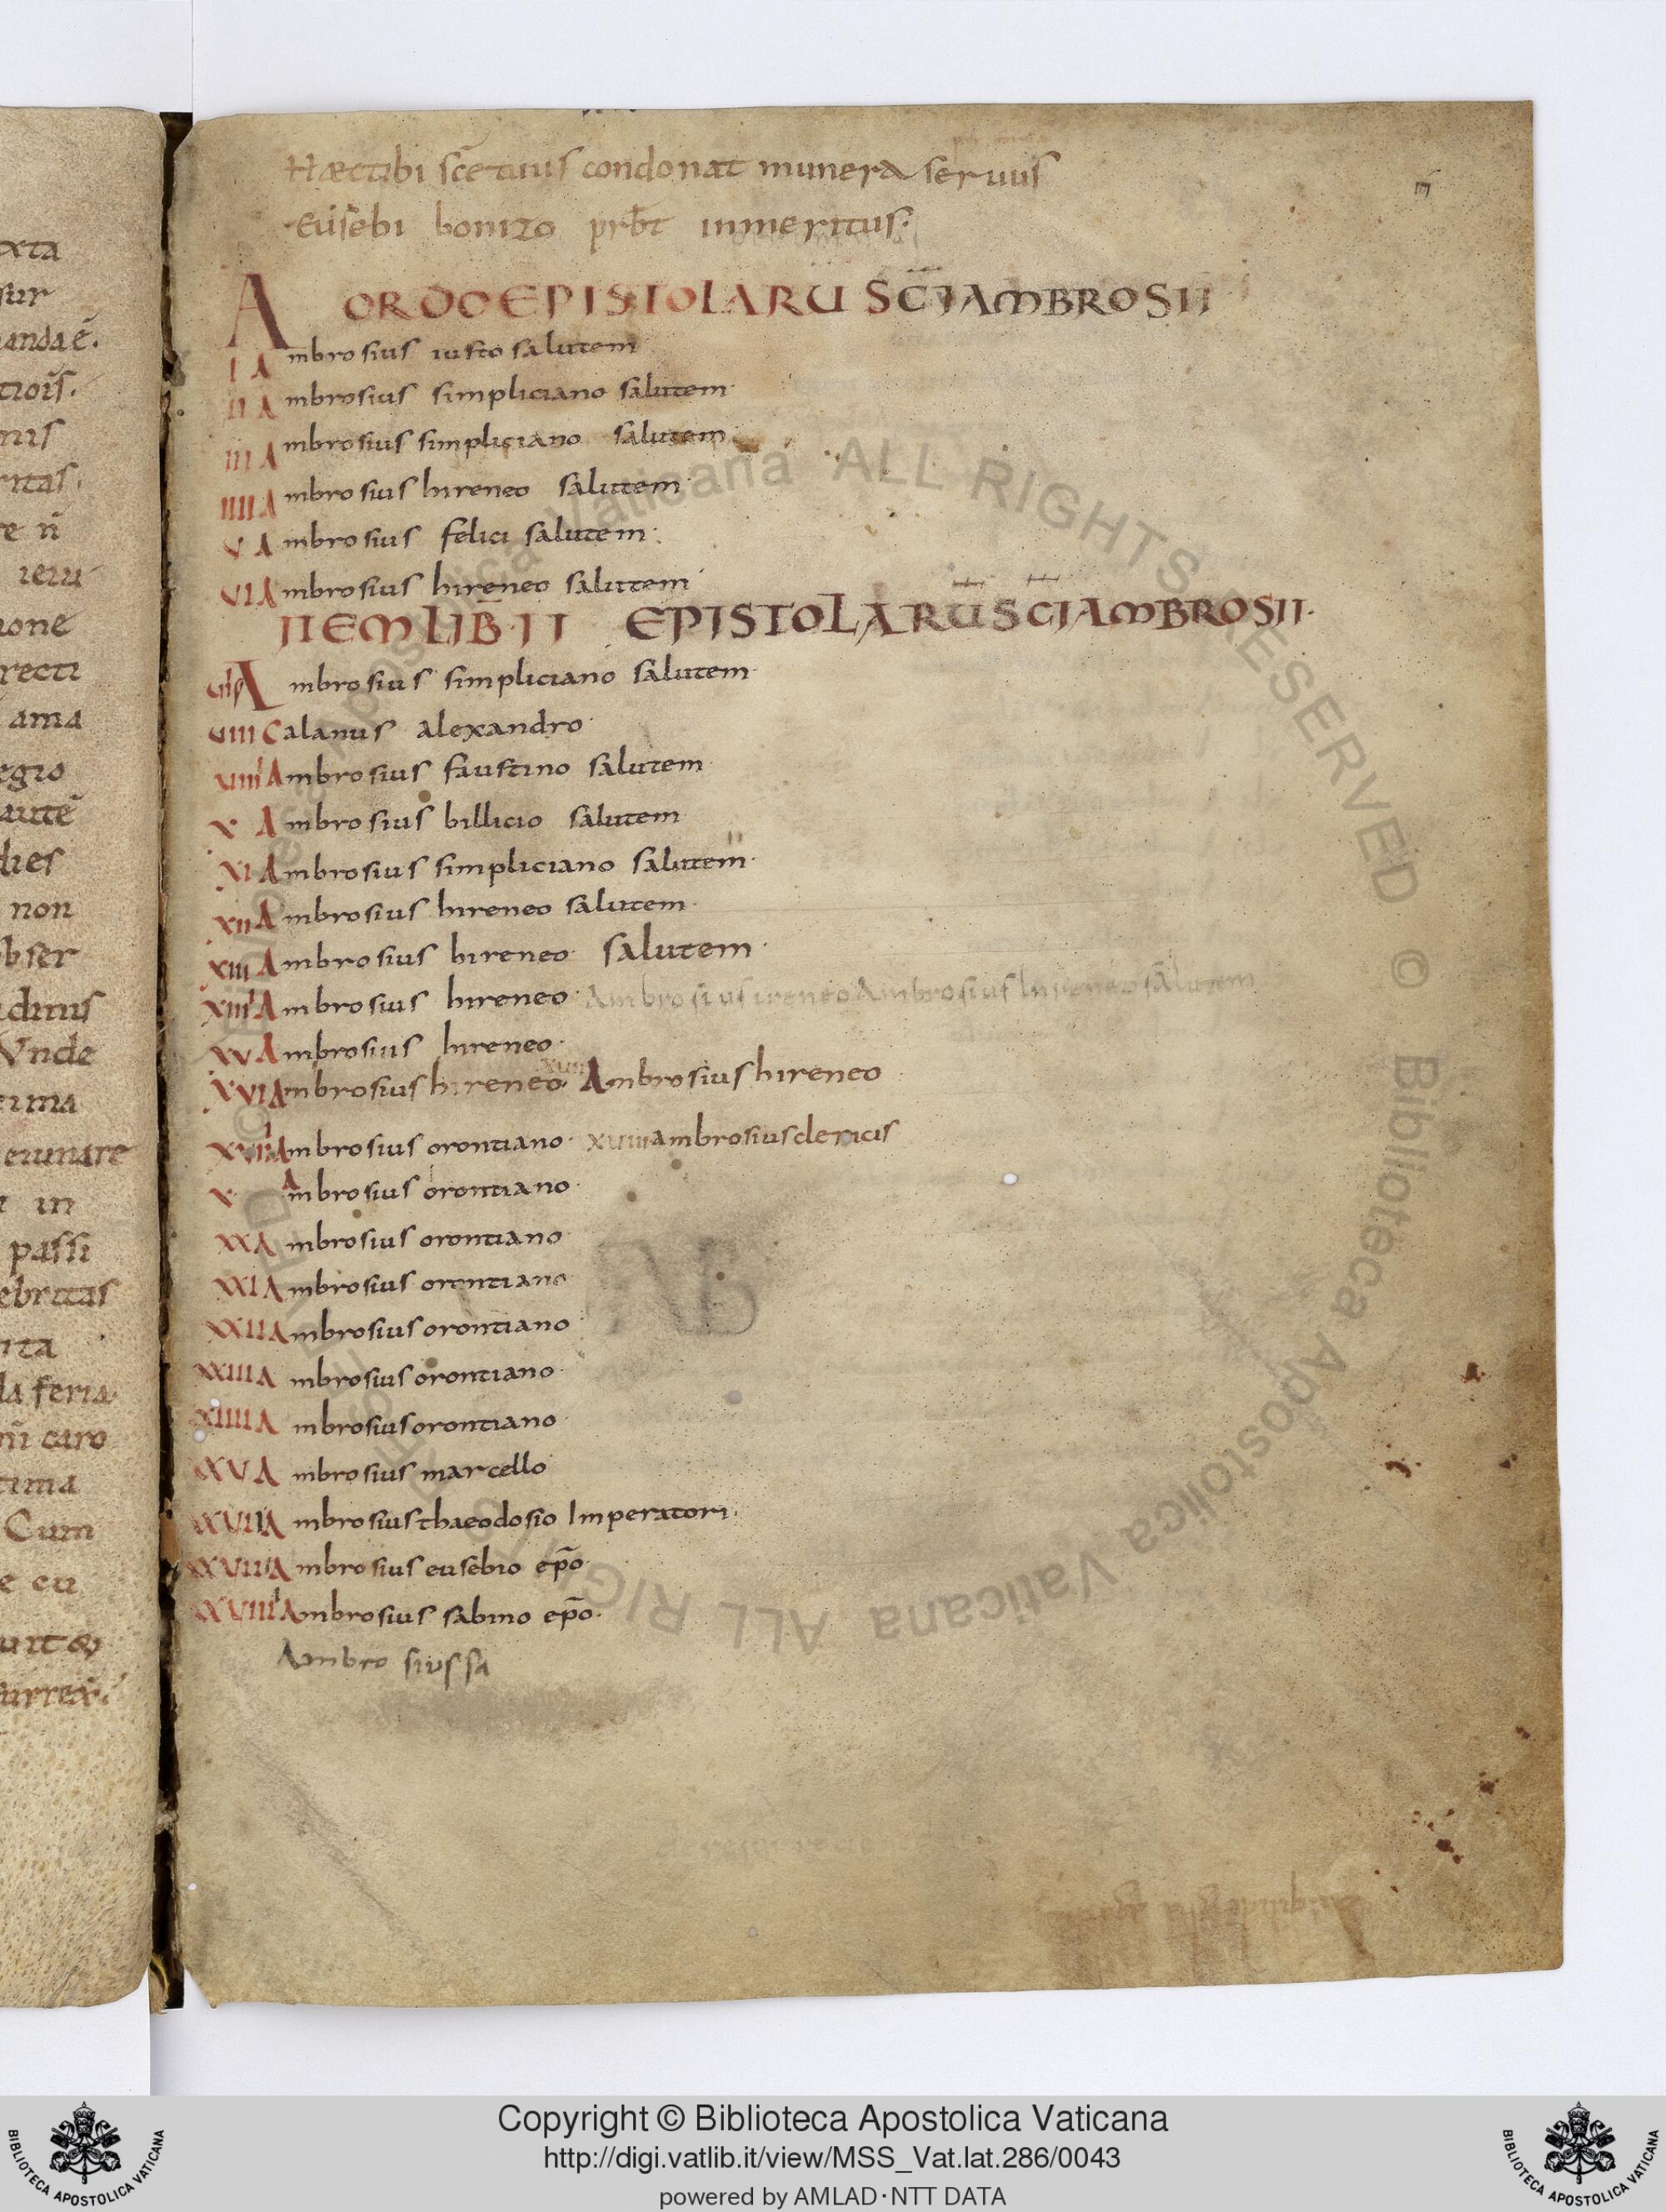 Hæc tibi sc̄e tuus condonat munera seruus
Eusebi bonizo prb̄t inmeritus·
ORDO EPISTOLARU SC̄I AMBROSII
I Ambrosius iusto salutem
II Ambrosius simpliciano salutem·
III Ambrosius simpliciano salutem·
IIII Ambrosius hireneo salutem·
V Ambrosius felici salutem·
VI Ambrosius hireneo salutem·
ITEM LIB̄·II EPISTOLARU SC̄I AMBROSII·
VII Ambrosius simpliciano salutem·
VIII Calanus alexandro·
VIIII Ambrosius faustino salutem·
X Ambrosius billicio salutem
XI Ambrosius simpliciano salutem·
XII Ambrosius hireneo salutem·
XIII Ambrosius hireneo· salutem·
XIIII Ambrosius hireneo· Ambrosius ireneo Ambrosius hireneo salutem
XV Ambrosius hireneo·
XVI Ambrosius hireneo· XVII Ambrosius hireneo
XVIII Ambrosius orontiano· XVIIII ambrosius clericis
X Ambrosius orontiano·
XXA mbrosius orontiano·
XXI Ambrosius orontiano
XXII Ambrosius orontiano·
XXIII Ambrosius orontiano·
XXIIII Ambrosius orontiano·
XXV Ambrosius marcello
XXVII Ambrosius thaeodosio Imperatori·
XXVIII Ambrosius eusebio ep̄o·
XXVIIII Ambrosius sabino ep̄o·
Ambrosius sa
xta
sur
anda ē·
tiois·
nis
ritas·
re n̄
ieiu
ione
recti
ama
egio
autē
dies
non
obser
Vnde
eiunare
in
passi
ebritas
ita
la feria·
caro
Cum
e eu
Copyright © Biblioteca Apostolica Vaticana
http://digi.vatlib.it/view/MSS_Vat.lat.286/0043
powered by AMLAD·NTT DATA
BIBLIOTECA APOSTOLICA VATICANA
BIBLIOTECA APOSTOLICA VATICANA
© Biblioteca Apostolica Vaticana ALL RIGHTS RESERVED © Biblioteca Apostolica Vaticana ALL RIGHTS RESERVED